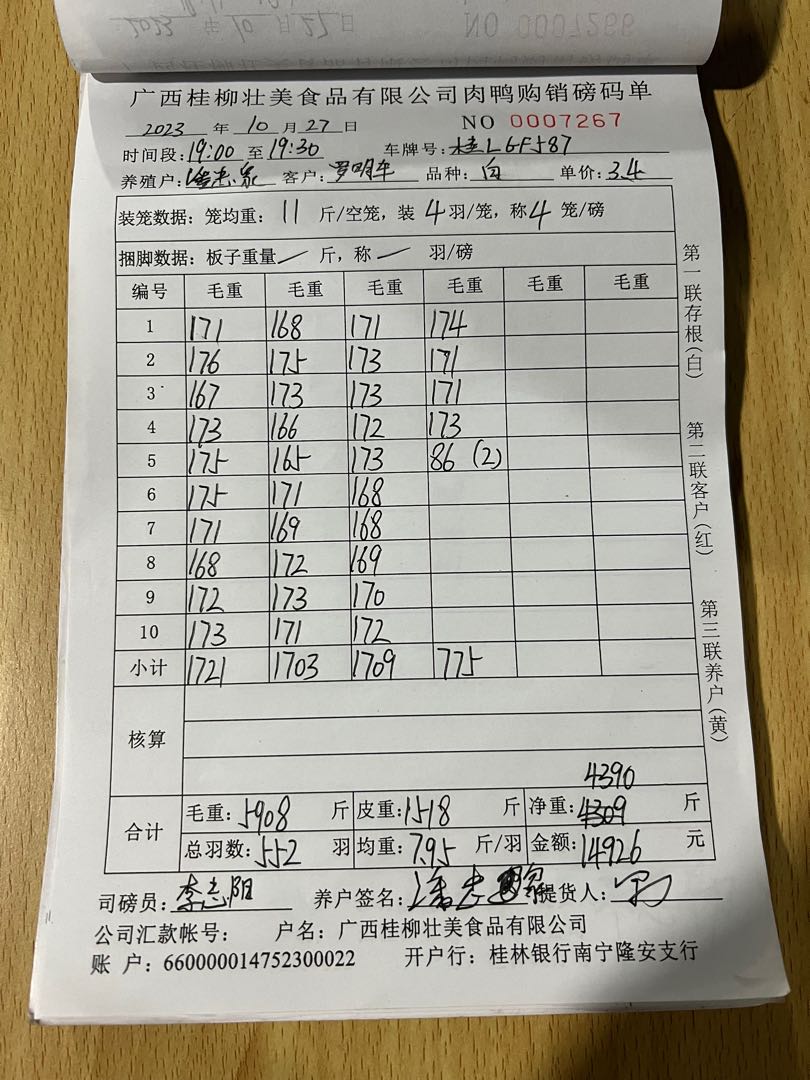 2023 年 10 月 27 日 NO 00072
广西桂柳壮美食品有限公司肉鸭购销磅码单
2023 年 10 月 27 日 NO 0007267
时间段: 19:00 至 19:30 车牌号: 桂LGF587
养殖户: 潘志家 客户: 罗明车 品种: 白 单价: 3.4
装笼数据: 笼均重: 11 斤/空笼, 装 4 羽/笼, 称 4 笼/磅
捆脚数据: 板子重量 — 斤, 称 — 羽/磅
编号 毛重 毛重 毛重 毛重 毛重 毛重
1 171 168 171 174
2 176 175 173 171
3 167 173 173 171
4 173 166 172 173
5 175 165 173 86 (2)
6 175 171 168
7 171 169 168
8 168 172 169
9 172 173 170
10 173 171 172
小计 1721 1703 1709 775
核算
4390
合计 毛重: 5908 斤 皮重: 1518 斤 净重: 4309 斤
总羽数: 552 羽 均重: 7.95 斤/羽 金额: 14926 元
司磅员: 李志阳 养户签名: 潘志 提货人:
公司汇款帐号: 户名: 广西桂柳壮美食品有限公司
账 户: 660000014752300022 开户行: 桂林银行南宁隆安支行
第一联存根(白)
第二联客户(红)
第三联养户(黄)